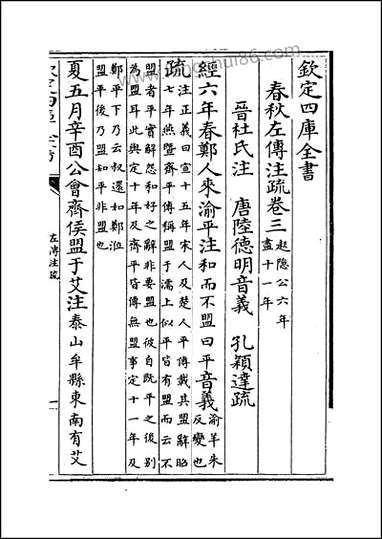 欽定四庫全書
春秋左傳注疏卷三 起隱公六年盡十一年
晉杜氏注 唐陸德明音義 孔穎達疏
經六年春鄭人來渝平注和而不盟曰平音義渝羊朱反變也
疏注正義曰宣十五年宋人及楚人平傳載其盟辭昭七年燕暨齊平傳稱盟于濡上似平皆有盟而云不
盟者平實解怨和好之辭非要盟也彼自既平之後別為盟耳與定十年及齊平皆傳無盟事定十一年及
鄭平下乃云叔還如鄭涖盟平後乃盟知平非盟也
夏五月辛酉公會齊侯盟于艾注泰山牟縣東南有艾
左傳注疏
一